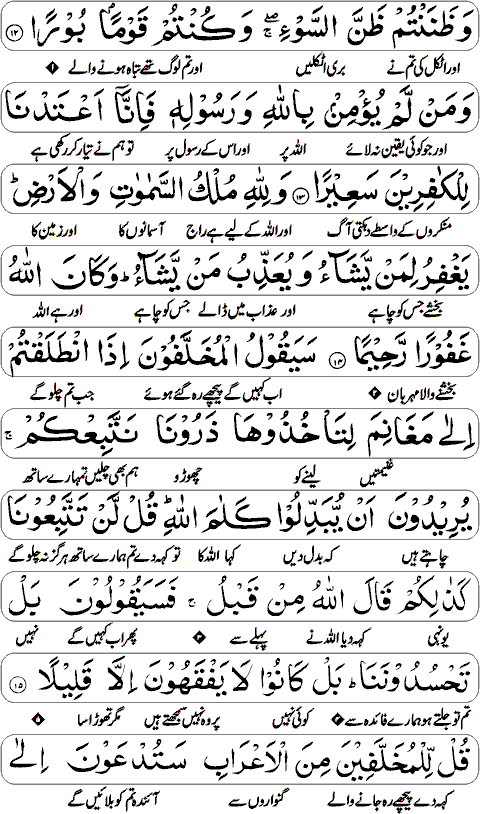 وَظَنَنْتُمْ ظَنَّ السَّوْءِ ۖۚ وَكُنْتُمْ قَوْمًاۢ بُوْرًا ۝۱۲
اور اٹکل کی تم نے بری اٹکلیں اور تم لوگ تھے تباہ ہونے والے ۱
وَمَنْ لَّمْ يُؤْمِنْۢ بِاللّٰهِ وَرَسُوْلِهٖ فَاِنَّآ اَعْتَدْنَا
اور جو کوئی یقین نہ لائے اللہ پر اور اس کے رسول پر تو ہم نے تیار کر رکھی ہے
لِلْكٰفِرِيْنَ سَعِيْرًا ۝۱۳ وَلِلّٰهِ مُلْكُ السَّمٰوٰتِ وَالْاَرْضِ ؕ
منکروں کے واسطے دہکتی آگ اور اللہ کے لیے ہے راج آسمانوں کا اور زمین کا
يَغْفِرُ لِمَنْ يَّشَآءُ وَيُعَذِّبُ مَنْ يَّشَآءُ ؕ وَكَانَ اللّٰهُ
بخشے جس کو چاہے اور عذاب میں ڈالے جس کو چاہے اور ہے اللہ
غَفُوْرًا رَّحِيْمًا ۝۱۴ سَيَقُوْلُ الْمُخَلَّفُوْنَ اِذَا انْطَلَقْتُمْ
بخشنے والا مہربان ۲ اب کہیں گے پیچھے رہ گئے ہوئے جب تم چلو گے
اِلٰى مَغَانِمَ لِتَاْخُذُوْهَا ذَرُوْنَا نَتَّبِعْكُمْ ۚ
غنیمتیں لینے کو چھوڑو ہم بھی چلیں تمہارے ساتھ
يُرِيْدُوْنَ اَنْ يُّبَدِّلُوْا كَلٰمَ اللّٰهِ ؕ قُلْ لَّنْ تَتَّبِعُوْنَا
چاہتے ہیں کہ بدل دیں کہا اللہ کا تو کہہ دے تم ہمارے ساتھ ہرگز نہ چلو گے
كَذٰلِكُمْ قَالَ اللّٰهُ مِنْ قَبْلُ ۚ فَسَيَقُوْلُوْنَ بَلْ
یونہی کہہ دیا اللہ نے پہلے سے پھر اب کہیں گے نہیں
تَحْسُدُوْنَنَا ؕ بَلْ كَانُوْا لَا يَفْقَهُوْنَ اِلَّا قَلِيْلًا ۝۱۵
تم تو جلتے ہو ہمارے فائدہ سے کوئی نہیں پر وہ نہیں سمجھتے ہیں مگر تھوڑا سا
قُلْ لِّلْمُخَلَّفِيْنَ مِنَ الْاَعْرَابِ سَتُدْعَوْنَ اِلٰى
کہہ دے پیچھے رہ جانے والے گنواروں سے آئندہ تم کو بلائیں گے